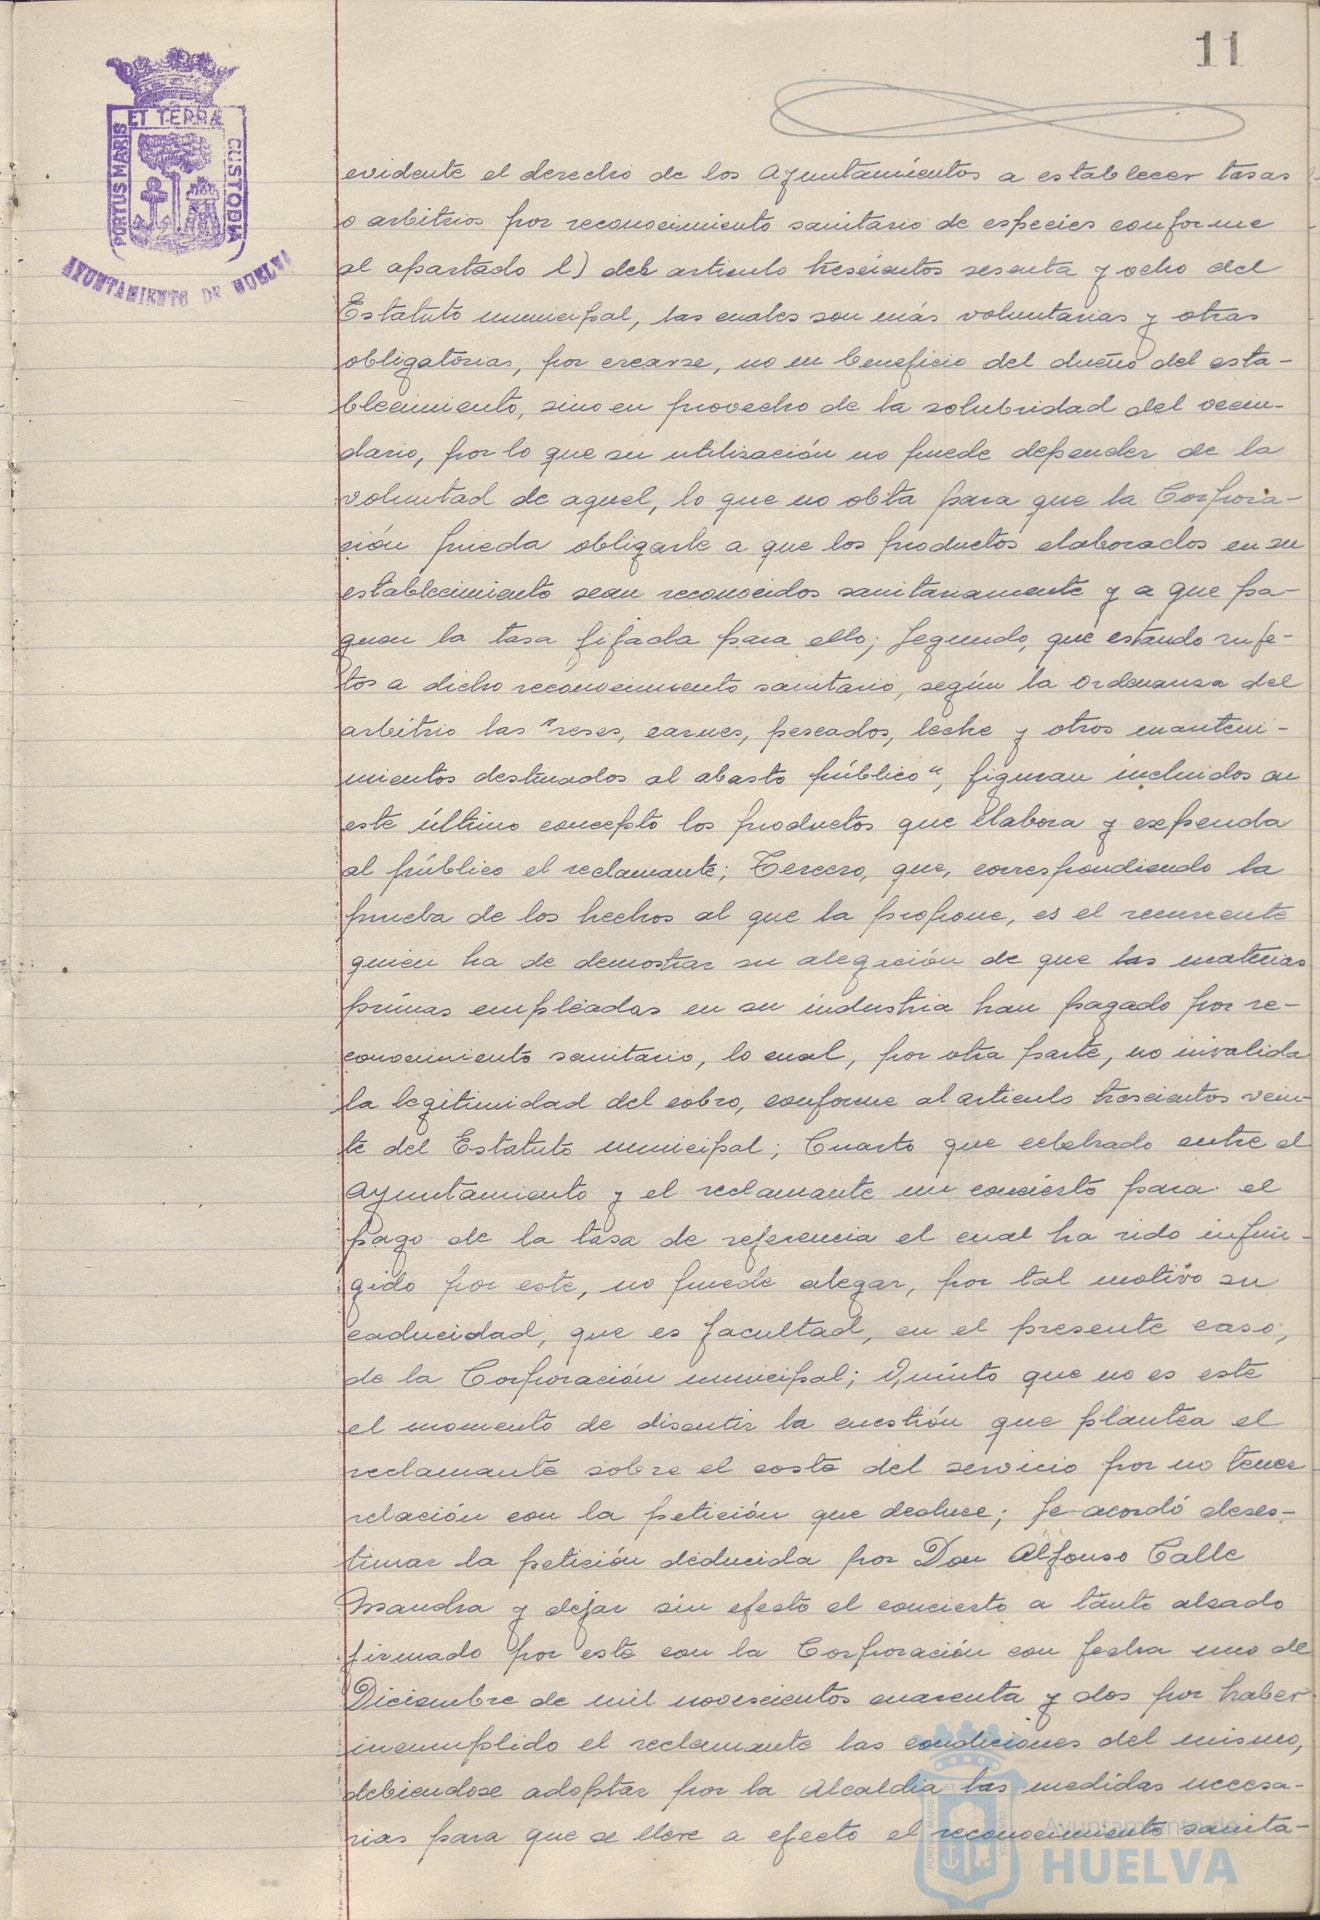 11
ET TERRÆ
PORTUS MARIS
CUSTODIA
AYUNTAMIENTO DE HUELVA
evidente el derecho de los Ayuntamientos a establecer tasas
o arbitrios por reconocimiento sanitario de especies conforme
al apartado l) del articulo trescientos sesenta y ocho del
Estatuto municipal, las cuales son más voluntarias y otras
obligatorias, por crearse, no en beneficio del dueño del esta-
blecimiento, sino en provecho de la solubridad del vecin-
dario, por lo que su utilización no puede depender de la
voluntad de aquel, lo que no obta para que la Corpora-
ción pueda obligarle a que los productos elaborados en su
establecimiento sean reconocidos sanitariamente y a que pa-
guen la tasa fijada para ello; Segundo, que estando suje-
tos a dicho reconocimiento sanitario, según la Ordenanza del
arbitrio las "reses, carnes, pescados, leche y otros manteni-
mientos destinados al abasto público", figuran incluidos en
este último concepto los productos que elabora y expenda
al público el reclamante; Tercero, que, correspondiendo la
prueba de los hechos al que la propone, es el recurrente
quien ha de demostrar su alegación de que las materias
primas empleadas en su industria han pagado por re-
conocimiento sanitario, lo cual, por otra parte, no invalida
la legitimidad del cobro, conforme al articulo trescientos vein-
te del Estatuto municipal; Cuarto que celebrado entre el
Ayuntamiento y el reclamante un concierto para el
pago de la tasa de referencia el cual ha sido infrin-
gido por este, no puede alegar, por tal motivo su
caducidad, que es facultad, en el presente caso,
de la Corporación municipal; Quinto que no es este
el momento de discutir la cuestión que plantea el
reclamante sobre el coste del servicio por no tener
relación con la petición que deduce; Se acordó deses-
timar la petición deducida por Don Alfonso Calle
Mandra y dejar sin efecto el concierto a tanto alzado
firmado por este con la Corporación con fecha uno de
Diciembre de mil novescientos cuarenta y dos por haber
incumplido el reclamante las condiciones del mismo,
debiendose adoptar por la Alcaldia las medidas necesa-
rias para que se lleve a efecto el reconocimiento sanita-
Ayuntamiento de
HUELVA